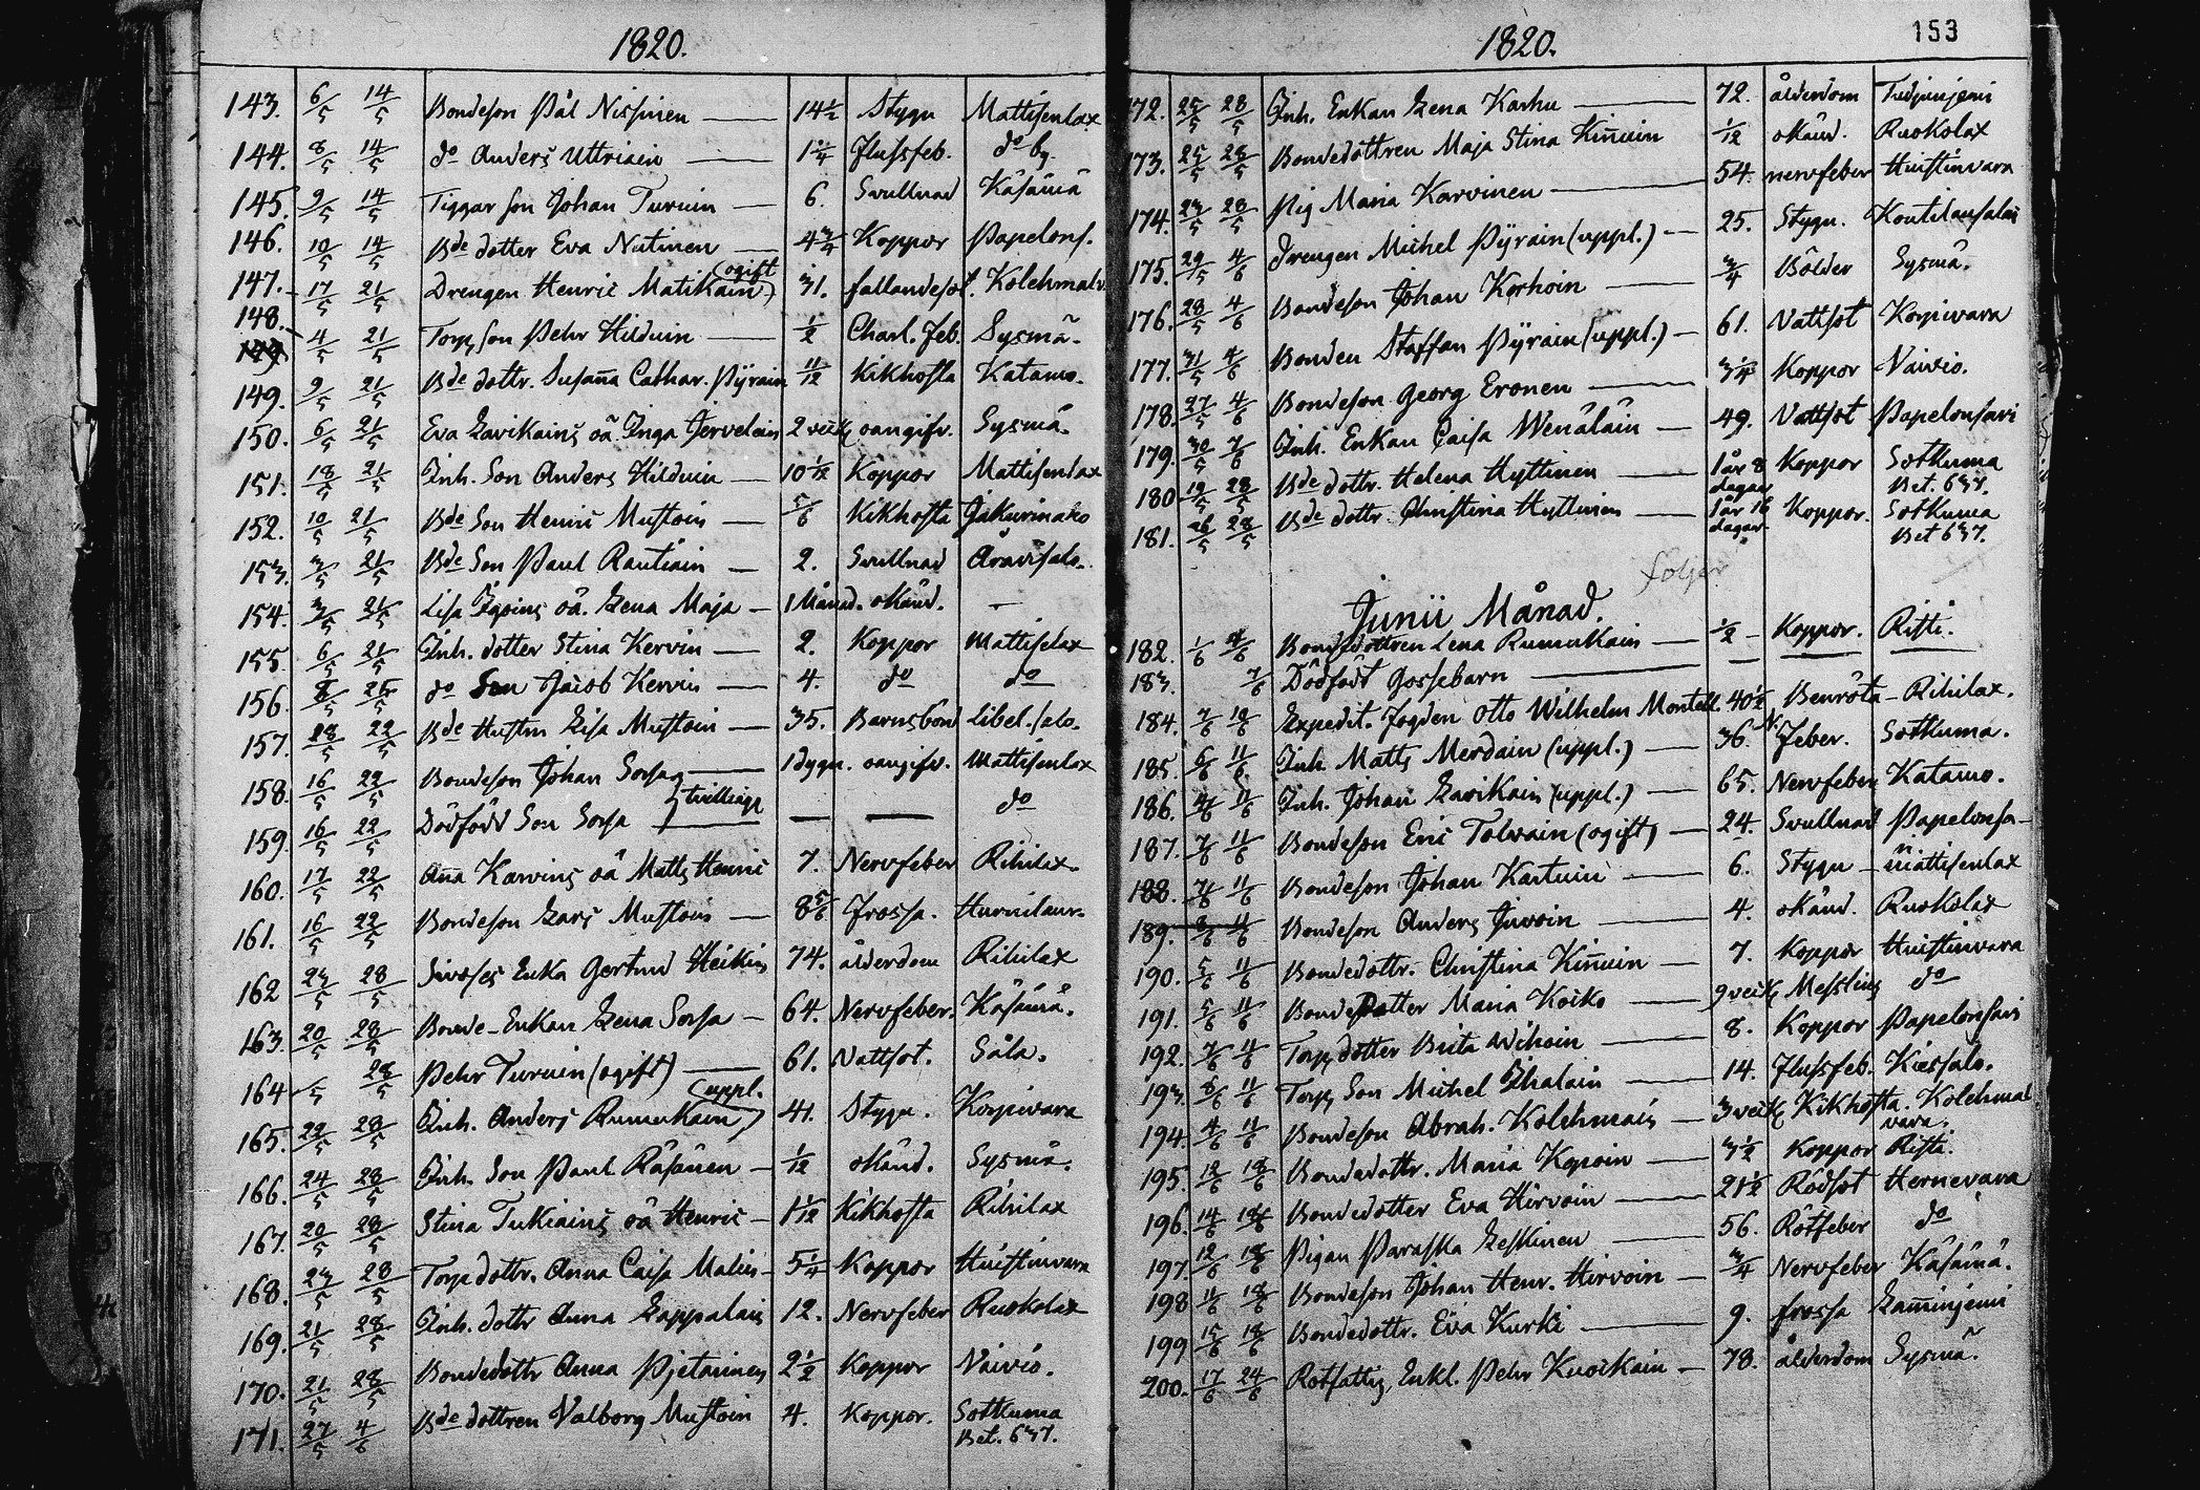 1820.
143. 6/5 14/5 Bondeson Pål Nissinen — 14 1/2 Stygn Mattisenlax
144. 8/5 14/5 do Anders Uttriain — 1 1/4 Flussfeb. do by.
145. 9/5 14/5 Tiggar son Johan Turuin — 6. Svullnad Käsämä
146. 10/5 14/5 Bde dotter Eva Nutinen — 4 3/4 Koppor Papelons.
147. 17/5 21/5 Drengen Henric Matikain (ogift) 31. fallandesot. Kolehmalv
148. 4/5 21/5 Torp. son Pehr Hilduin — 1/2 Charl. feb. Sysmä.
149. 9/5 21/5 Bde dottr. Susaña Cathar. Pÿrain 11/12 Kikhosta Katamo.
150. 6/5 21/5 Eva Lavikains oä. Inga Jervelain 2 veck. oangifv. Sysmä.
151. 18/5 21/5 Inh. Son Anders Hilduin — 10 1/12 Koppor Mattisenlax
152. 10/5 21/5 Bde Son Henric Mustoin — 5/6 Kikhosta Jakurinaho
153. 3/5 21/5 Bde Son Paul Rautiain — 2. Svullnad Aravisalo.
154. 3/5 21/5 Lisa oä. Lena Maja — 1 Månad. okänd. —
155. 6/5 21/5 Inh. dotter Stina Kervin — 2. Koppor Mattiselax
156. 8/5 25/5 do Son Jacob Kervin — 4. do do
157. 18/5 22/5 Bde Hustru Lisa Mustoin — 35. Barnsbörd Libel. salo.
158. 16/5 22/5 Bondeson Johan Sorsa — 1 dygn. oangifv. Mattisenlax
tvillingr
159. 16/5 22/5 Dödfödd Son Sorsa — — — do
160. 17/5 22/5 Aña Karvins oä Matts Henric 7. Nervfeber Rihilax.
161. 16/5 22/5 Bondeson Lars Mustoin — 8 5/6 frossa. Hurnilaur.
162 23/5 28/5 Enka Gertrud Heikin 74. ålderdom Rihilax
163. 20/5 28/5 Bonde-Enkan Lena Sorsa — 64. Nervfeber. Käsämä.
164 /5 28/5 Pehr Turuin (ogift) — 61. Vattsot. Såla.
165. 22/5 28/5 Inh. Anders Rumukain (uppl.) 41. Stygn. Korpivara
166. 24/5 28/5 Inh. Son Paul Räsänen — 1/12 okänd. Sysmä.
167. 20/5 28/5 Stina Tukiains oä Henric — 1 1/12 Kikhosta Rihilax
168. 23/5 28/5 Torp dottr. Anna Caisa Malin — 5 1/4 Koppor Huistinvara
169. 21/5 28/5 Inh. dottr Anna Lappalain 12. Nervfeber Ruokolax
170. 21/5 28/5 Bondedottr Anna Pjetarinen 2 1/2 Koppor Vaivio.
171. 27/5 4/6 Bde dottren Valborg Mustoin 4. Koppor. Sotkuma
Bet. 637.
153
1820.
172. 25/5 28/5 Inh. Enkan Lena Karhu — 72. ålderdom
173. 25/5 28/5 Bondedottren Maja Stina Kiñuin 1/12 okänd. Ruokolax
174. 23/5 28/5 Pig Maria Karvinen — 54 nervfeber Huistinvara
175. 29/5 4/6 Drengen Michel Pÿrain (uppl.) — 25. Stygn. Kontilansalmi
176. 28/5 4/6 Bondeson Johan Korhoin — 3/4 Bölder Sysmä.
177. 31/5 4/6 Bonden Staffan Pÿrain (uppl.) — 61. Vattsot Korpivara
178. 27/5 4/6 Bondeson Georg Eronen — 3 1/4 Koppor Vaivio.
179. 30/5 7/6 Inh. Enkan Caisa Wenäläin — 49. Vattsot Papelonsari
180 19/5 28/5 Bde dottr. Helena Hyttinen — 1 år 8 dagar Koppor Sotkuma
Bet. 637.
181. 26/5 28/5 Bde dottr. Christina Hyttinen — 1 år 16 dagar Koppor. Sotkuma
Bet 637.
följer
Junii Månad.
182. 1/6 4/6 Bondedottren Lena Rumukain — 1/2 — Koppor. Risti.
183. 7/6 Dödfödt Gossebarn —
184. 7/6 10/6 Expedit. Fogden Otto Wilhelm Montell. 40 1/2 Benröta — Rihilax.
185. 6/6 11/6 Inh. Matts Merdain (uppl.) — 36. N. Feber. Sotkuma.
186. 4/6 11/6 Inh. Johan Lavikain (uppl.) — 65. Nervfeber Katamo.
187. 7/6 11/6 Bondeson Eric Tolvain (ogift) — 24. Svullnad Papelonsa—
188. 7/6 11/6 Bondeson Johan Kartuin — 6. Stygn — Mattisenlax
189. 8/6 11/6 Bondeson Anders Juvoin — 4. okänd. Ruokolax
190. 5/6 11/6 Bondedottr. Christina Kiñuin — 7. Koppor Huistinvara
191. 5/6 11/6 Bondedotter Maria Koiko — 9 veck. Messling do
192. 7/6 11/6 Torp. dotter Brita Wihoin — 8. Koppor Papelonsari
193. 8/6 11/6 Torp. Son Michel Ihalain — 14. Flussfeb. Kiessalo.
194. 4/6 11/6 Bondeson Abrah. Kolehmain — 3 veck. Kikhosta. Kolehmal
vara.
195. 12/6 18/6 Bondedottr. Maria Kopoin — 3 1/2 Koppor Risti.
196. 14/6 18/6 Bondedotter Eva Hirvoin — 21 1/2 Rödsot Hernevara
197. 12/6 18/6 Pigan Paraska Leskinen — 56. Rötfeber do
198 11/6 18/6 Bondeson Johan Henr. Hirvoin — 3/4 Nervfeber Käsämä.
199 15/6 18/6 Bondedottr. Eva Kurki — 9. frossa Lamminjemi
200. 17/6 24/6 Rotfattig, Enkl. Pehr Kuoikain — 78. ålderdom Sysmä.